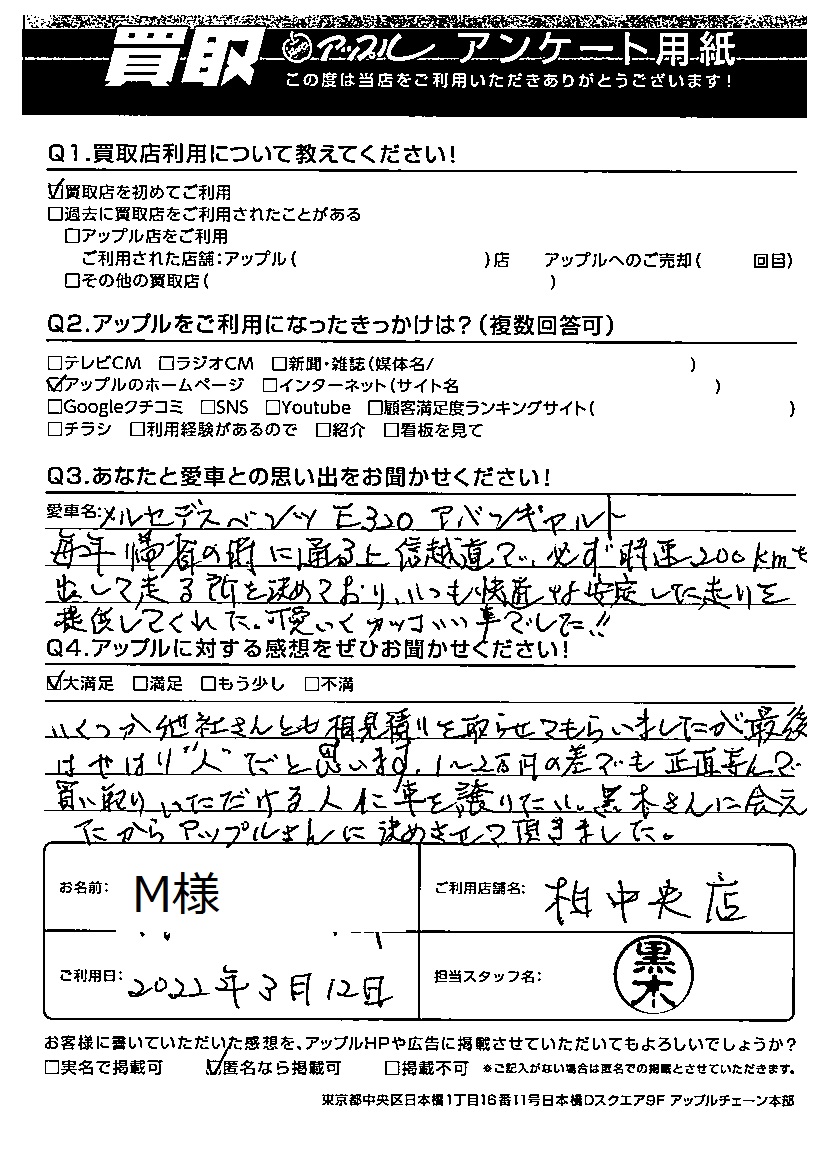 買取 アップル アンケート用紙
この度は当店をご利用いただきありがとうございます!
Q1.買取店利用について教えてください!
☑買取店を初めてご利用
□過去に買取店をご利用されたことがある
□アップル店をご利用
ご利用された店舗:アップル( )店 アップルへのご売却( 回目)
□その他の買取店( )
Q2.アップルをご利用になったきっかけは?(複数回答可)
□テレビCM □ラジオCM □新聞・雑誌(媒体名/ )
☑アップルのホームページ □インターネット(サイト名 )
□Googleクチコミ □SNS □Youtube □顧客満足度ランキングサイト( )
□チラシ □利用経験があるので □紹介 □看板を見て
Q3.あなたと愛車との思い出をお聞かせください!
愛車名:メルセデスベンツ E320 アバンギャルト
毎年帰省の時に通る上信越道で、必ず時速200kmを
出して走る所を決めており、いつも快適な安定した走りを
提供してくれた。可愛いくカッコいい車でした!!
Q4.アップルに対する感想をぜひお聞かせください!
☑大満足 □満足 □もう少し □不満
いくつか他社さんとも相見積りを取らせてもらいましたが最後
はやはり"人"だと思います。1〜2万円の差でも正直喜んで
買い取りいただける人に車を譲りたい。黒木さんに会え
たからアップルさんに決めさせて頂きました。
お名前: M様 ご利用店舗名: 柏中央店
ご利用日: 2022年3月12日 担当スタッフ名: 黒木
お客様に書いていただいた感想を、アップルHPや広告に掲載させていただいてもよろしいでしょうか?
□実名で掲載可 ☑匿名なら掲載可 □掲載不可 ※ご記入がない場合は匿名での掲載とさせていただきます。
東京都中央区日本橋1丁目16番11号日本橋Dスクエア9F アップルチェーン本部